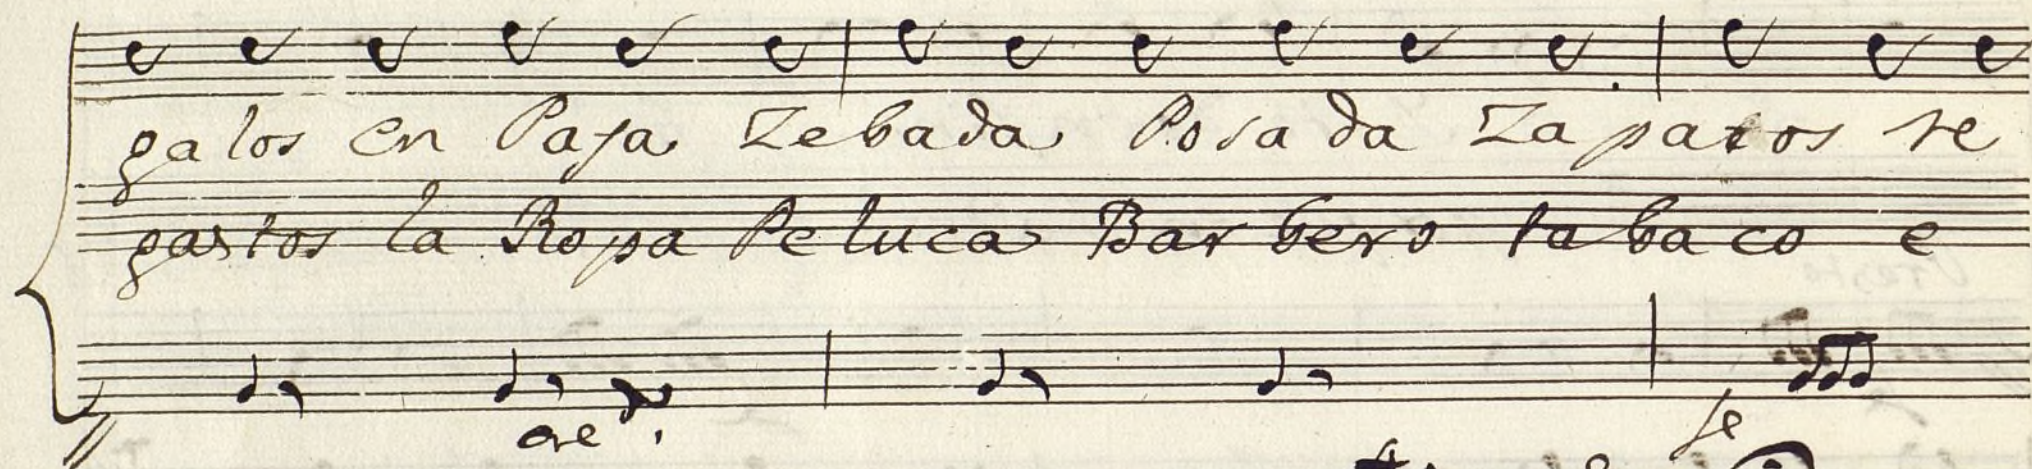 galos en Paja Zebada Posada Zapatos re
gastos la Ropa Peluca Barbero tabaco e
fe